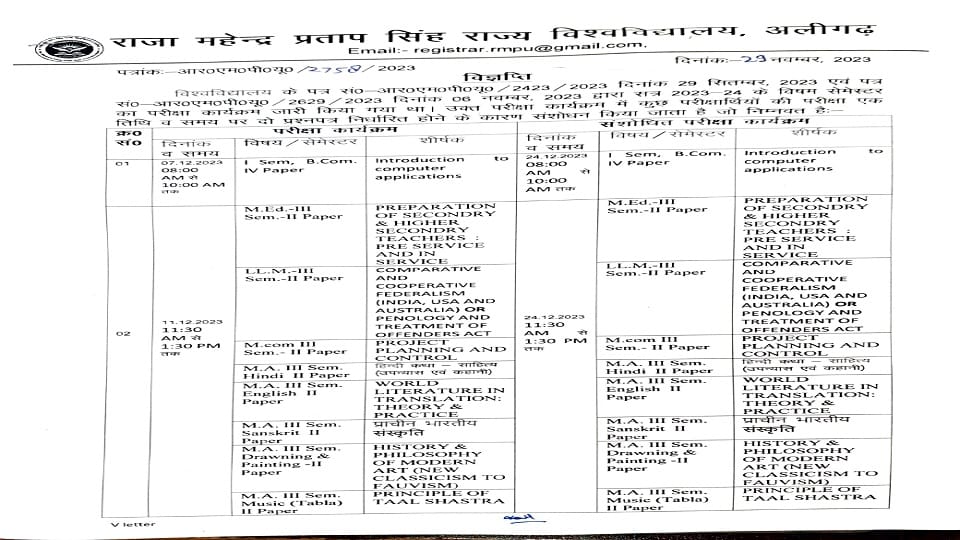 राजा महेन्द्र प्रताप सिंह राज्य विश्वविद्यालय, अलीगढ़
Email:- registrar.rmpu@gmail.com.
पत्रांकः—आर०एम०पी०यू० /2758/2023
दिनांकः-29 नवम्बर, 2023
विज्ञप्ति
विश्वविद्यालय के पत्र सं०—आर०एम०पी०यू० /2423 /2023 दिनांक 29 सितम्बर, 2023 एवं पत्र
सं०—आर०एम०पी०यू० /2629 /2023 दिनांक 06 नवम्बर, 2023 द्वारा सत्र 2023—24 के विषम सेमेस्टर
का परीक्षा कार्यक्रम जारी किया गया था। उक्त परीक्षा कार्यक्रम में कुछ परीक्षार्थियों की परीक्षा एक
तिथि व समय पर दो प्रश्नपत्र निर्धारित होने के कारण संशोधन किया जाता है जो निम्नवत है:—
क्र० सं०
परीक्षा कार्यक्रम
संशोधित परीक्षा कार्यक्रम
दिनांक व समय
विषय/सेमेस्टर
शीर्षक
दिनांक व समय
विषय/सेमेस्टर
शीर्षक
01
07.12.2023
08:00
AM से
10:00 AM
तक
I Sem, B.Com.
IV Paper
Introduction to
computer
applications
24.12.2023
08:00
AM से
10:00
AM तक
I Sem, B.Com.
IV Paper
Introduction to
computer
applications
02
11.12.2023
11:30
AM से
1:30 PM
तक
M.Ed.-III
Sem.-II Paper
PREPARATION
OF SECONDRY
& HIGHER
SECONDRY
TEACHERS :
PRE SERVICE
AND IN
SERVICE
LL.M.-III
Sem.-II Paper
COMPARATIVE
AND
COOPERATIVE
FEDERALISM
(INDIA, USA AND
AUSTRALIA) OR
PENOLOGY AND
TREATMENT OF
OFFENDERS ACT
M.com III
Sem.- II Paper
PROJECT
PLANNING AND
CONTROL
M.A. III Sem.
Hindi II Paper
हिन्दी कथा – साहित्य
(उपन्यास एवं कहानी)
M.A. III Sem.
English II
Paper
WORLD
LITERATURE IN
TRANSLATION:
THEORY &
PRACTICE
M.A. III Sem.
Sanskrit II
Paper
प्राचीन भारतीय
संस्कृति
M.A. III Sem.
Drawning &
Painting -II
Paper
HISTORY &
PHILOSOPHY
OF MODERN
ART (NEW
CLASSICISM TO
FAUVISM)
M.A. III Sem.
Music (Tabla)
II Paper
PRINCIPLE OF
TAAL SHASTRA
24.12.2023
11:30
AM से
1:30 PM
तक
M.Ed.-III
Sem.-II Paper
PREPARATION
OF SECONDRY
& HIGHER
SECONDRY
TEACHERS :
PRE SERVICE
AND IN
SERVICE
LL.M.-III
Sem.-II Paper
COMPARATIVE
AND
COOPERATIVE
FEDERALISM
(INDIA, USA AND
AUSTRALIA) OR
PENOLOGY AND
TREATMENT OF
OFFENDERS ACT
M.com III
Sem.- II Paper
PROJECT
PLANNING AND
CONTROL
M.A. III Sem.
Hindi II Paper
हिन्दी कथा – साहित्य
(उपन्यास एवं कहानी)
M.A. III Sem.
English II
Paper
WORLD
LITERATURE IN
TRANSLATION:
THEORY &
PRACTICE
M.A. III Sem.
Sanskrit II
Paper
प्राचीन भारतीय
संस्कृति
M.A. III Sem.
Drawning &
Painting -II
Paper
HISTORY &
PHILOSOPHY
OF MODERN
ART (NEW
CLASSICISM TO
FAUVISM)
M.A. III Sem.
Music (Tabla)
II Paper
PRINCIPLE OF
TAAL SHASTRA
V letter